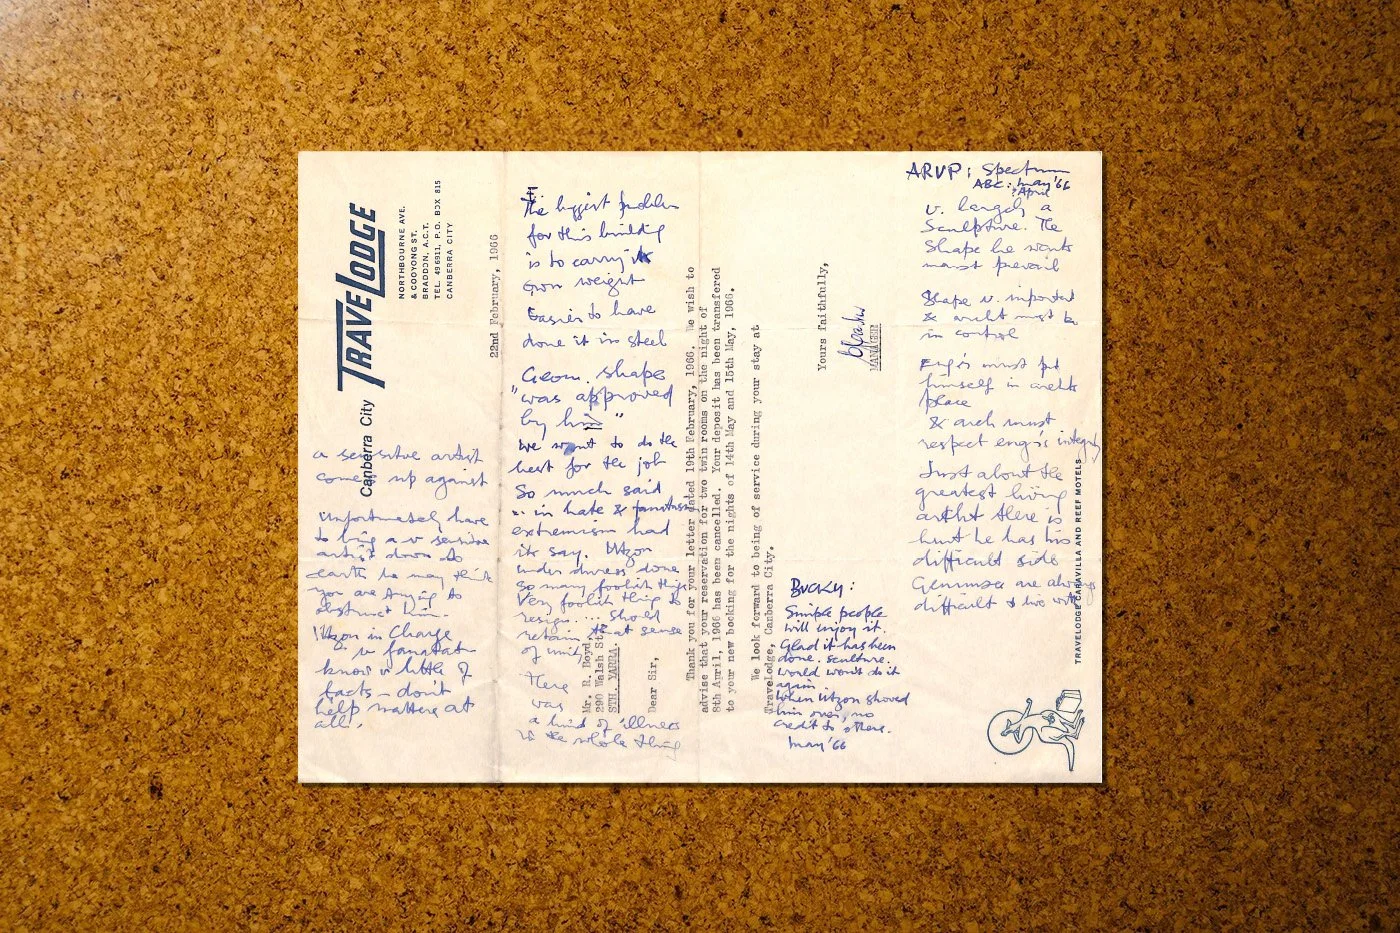 TRAVELODGE
Canberra City
NORTHBOURNE AVE.
& COOYONG ST.
BRADDON, A.C.T.
TEL. 49 6911, P.O. BOX 815
CANBERRA CITY
22nd February, 1966
Mr. R. Boyd,
290 Walsh St.
STH. YARRA.
Dear Sir,
Thank you for your letter dated 19th February, 1966. We wish to
advise that your reservation for two twin rooms on the night of
8th April, 1966 has been cancelled. Your deposit has been transfered
to your new booking for the nights of 14th May and 15th May, 1966.
We look forward to being of service during your stay at
TraveLodge, Canberra City.
Yours faithfully,
MANAGER
TRAVELODGE CARAVILLA AND REEF MOTELS
a sensitive artist
comes up against
Unfortunately have
to bring a v sensitive
artist down to
earth he may think
you are trying to
obstruct him.
Utzon in Charge
v fanatic
know v little of
facts - don't
help matters at
all.
The biggest problem
for this building
is to carry its
own weight
Easier to have
done it in steel
Geom. shape
"was approved
by him"
we want to do the
best for the job
So much said
... in hate & fanatism
extremism had
its say. Utzon
under duress done
so many foolish things
Very foolish thing to
resign.... should
retain that sense
of unity
There
was
a kind of illness
in the whole thing
BUCKY:
Simple people
will enjoy it.
Glad it has been
done. sculture.
world won't do it
again.
When Utzon shoved
him over, no
credit to others.
May '66
ARUP: Spectrum
ABC: May '66
April
v. largely a
Sculpture. The
Shape he wants
must prevail
Shape v. important
& archt must be
in control
Eng'r must put
himself in archts
place
& arch must
respect eng's integrity
Just about the
greatest living
artist there is
but he has his
difficult side
Geniuses are always
difficult to live with